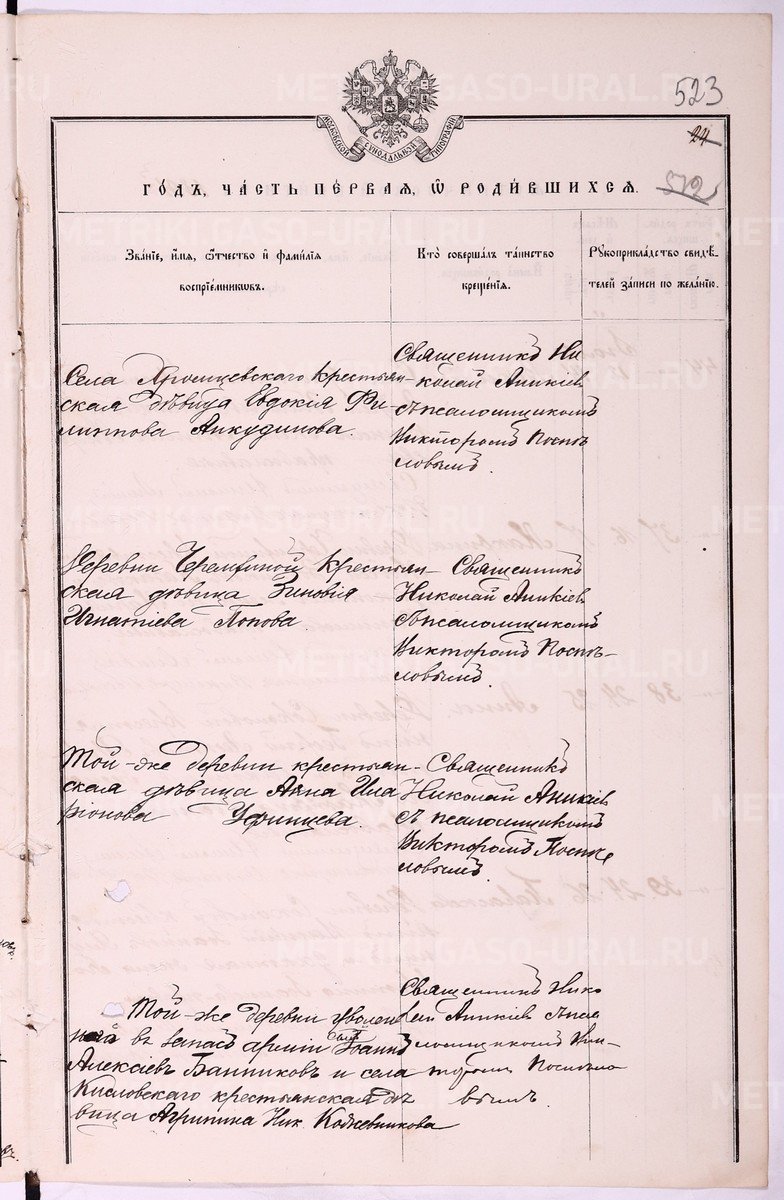 523
МОСКОВСКОЙ СѴНОДАЛЬНОЙ ТИПОГРАФІИ
24
572
ГО́ДЪ, ЧА́СТЬ ПЕ́РВАЯ, Ѽ РОДИ́ВШИХСЯ.
Зва́нїе, и́мя, ѻ҆́тчество и҆ фами́лїя
воспрїе́мниковъ.
Кто̀ соверша́лъ та́инство
креще́нїя.
Рꙋкоприкла́дство свидѣ́-
телей за́писи по жела́нїю.
Села крестьян-
ская дѣвица Евдокія Фи-
липпова Анкудинова.
Священникъ Ни-
колай Аникіев
съ псаломщикомъ
Викторомъ Поспѣ
ловымъ.
Деревни крестьян-
ская дѣвица Зиновія
Игнатіева Попова.
Священникъ
Николай Аникіев
съ псаломщикомъ
Викторомъ Поспѣ-
ловымъ.
Той-же деревни крестьян-
ская дѣвица Анна Ила
ріонова Уфинцева.
Священникъ
Николай Аникіев
съ псаломщикомъ
Викторомъ Поспѣ
ловымъ.
Той-же деревни уволен
ный въ запасъ арміи Іоаннъ
Алексіевъ Банниковъ и села
Кисловского крестьянская дѣ
вица Агрипина Ник. Кожевникова
Священникъ Нико
лай Аникіев съ пса
ломщикомъ Вик-
торомъ Поспѣло
вымъ.
METRIKI.GASO-URAL.RU